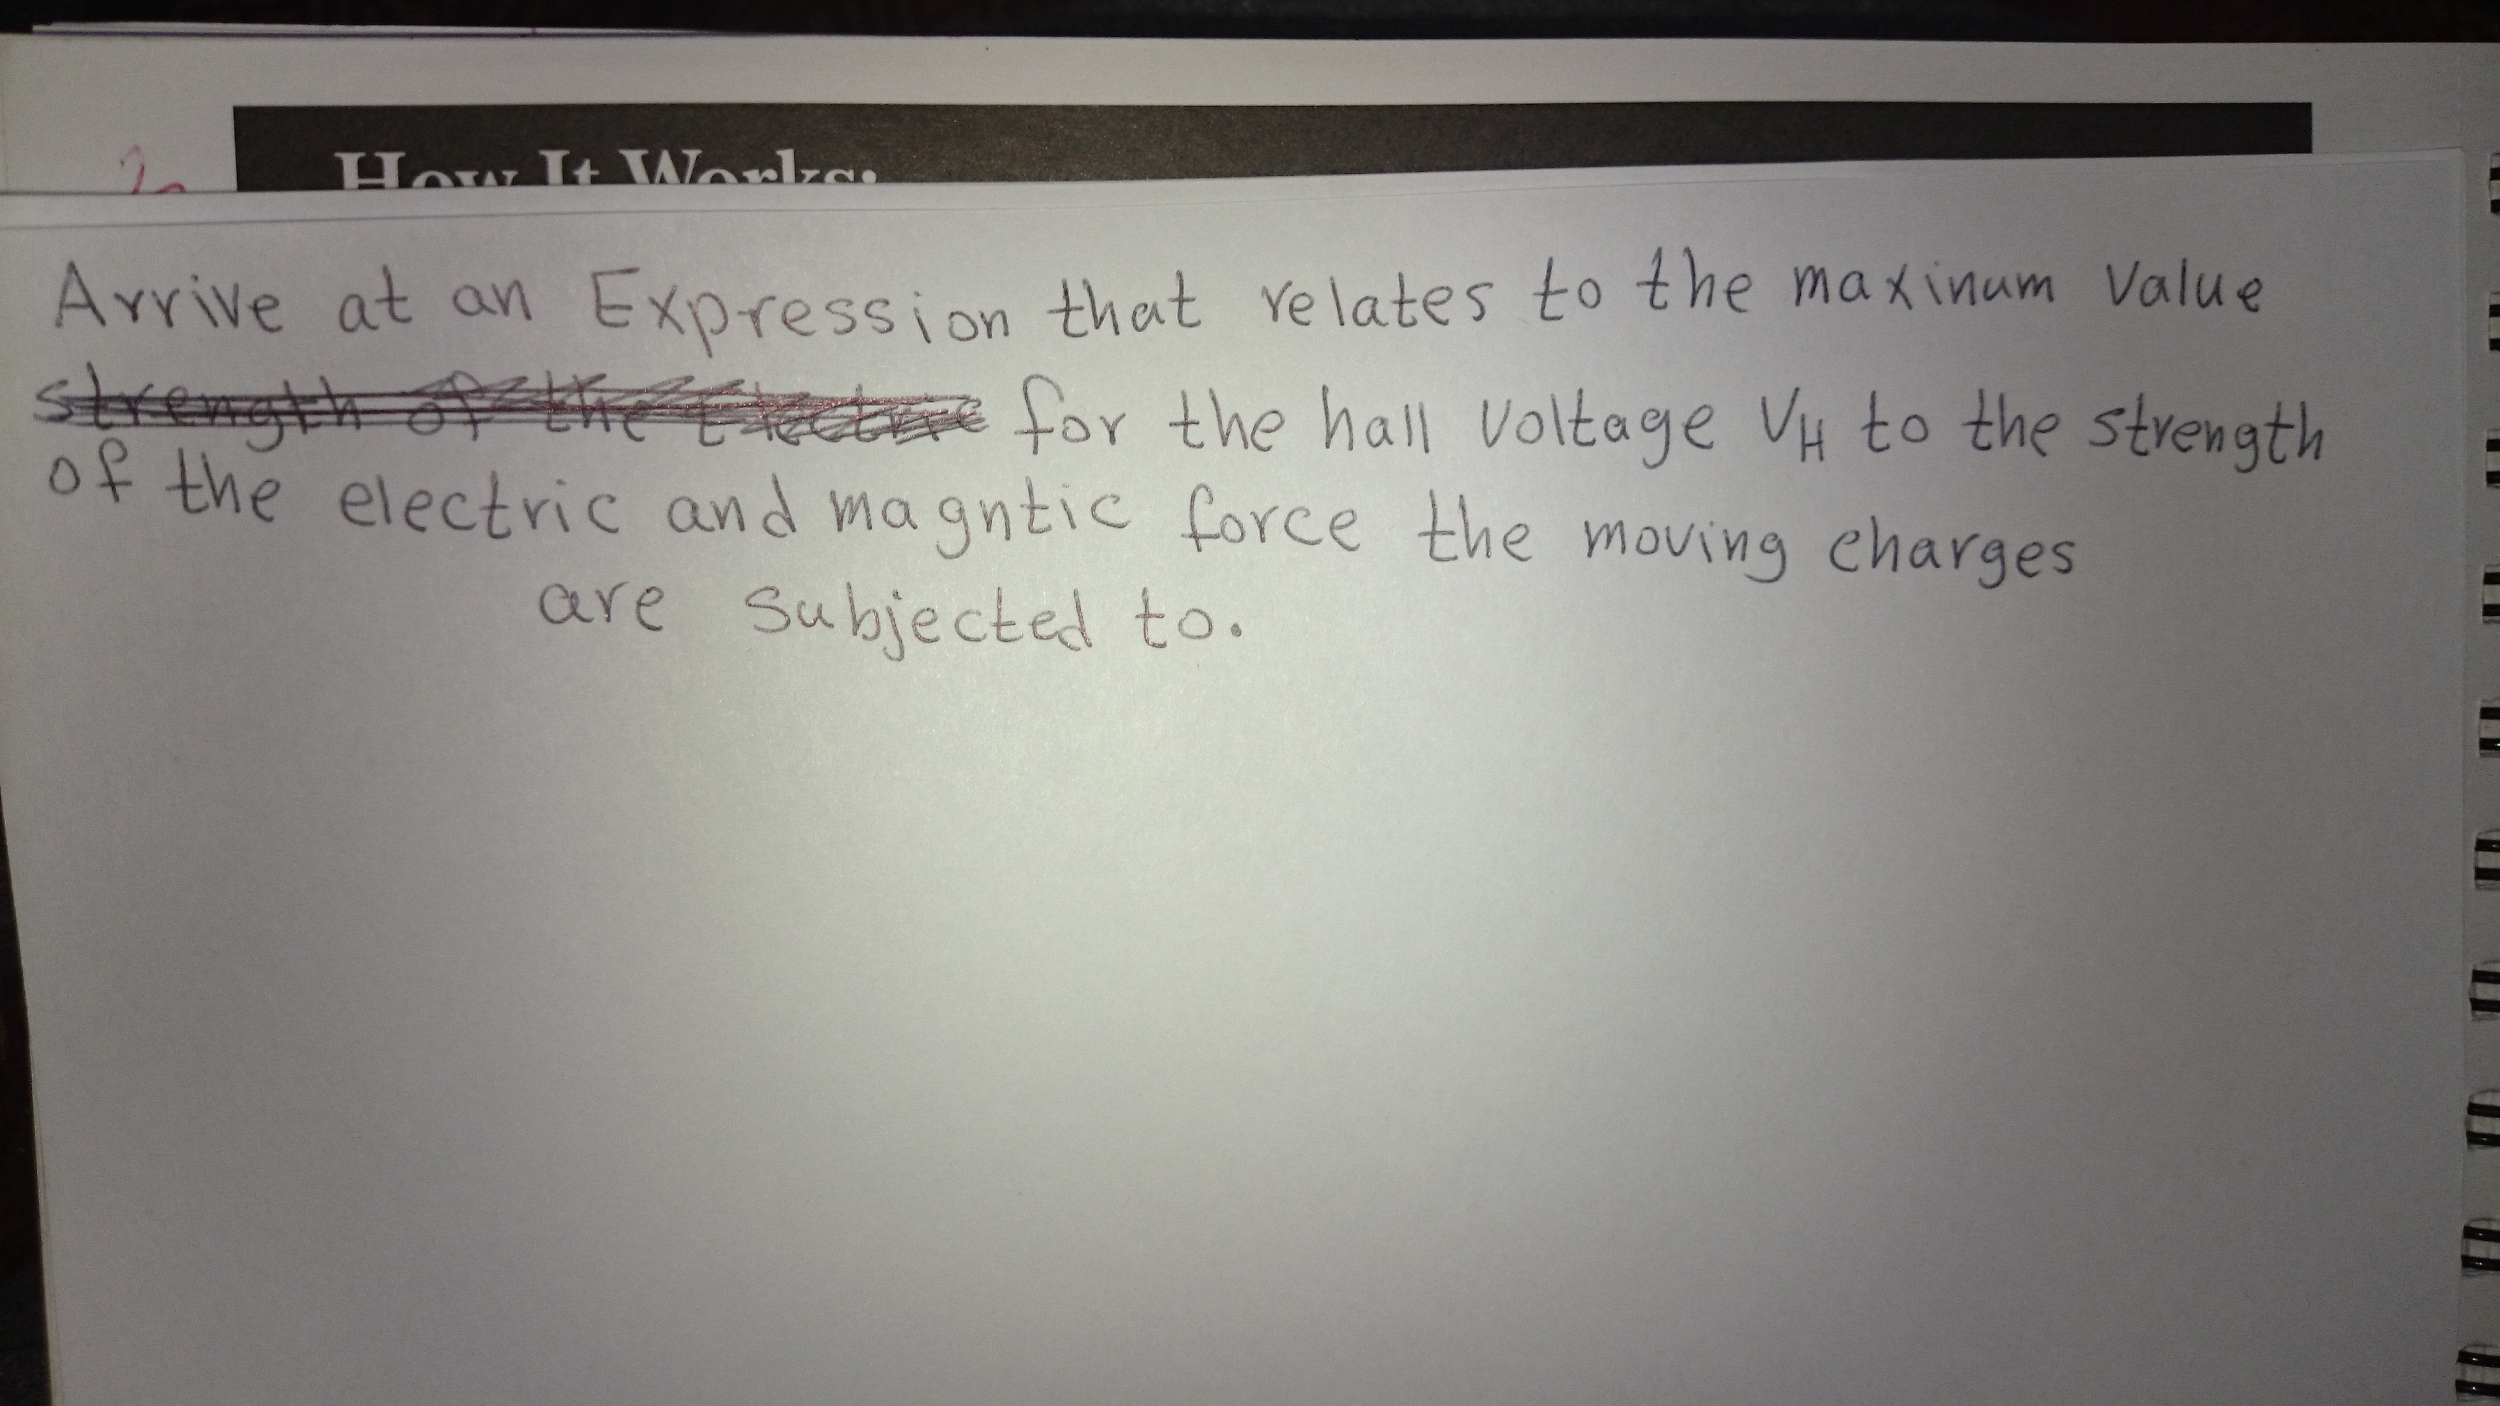 How It Works:
Arrive at an Expression that relates to the maxinum value
strength of the Electric for the hall voltage VH to the strength
of the electric and magntic force the moving charges
are subjected to.